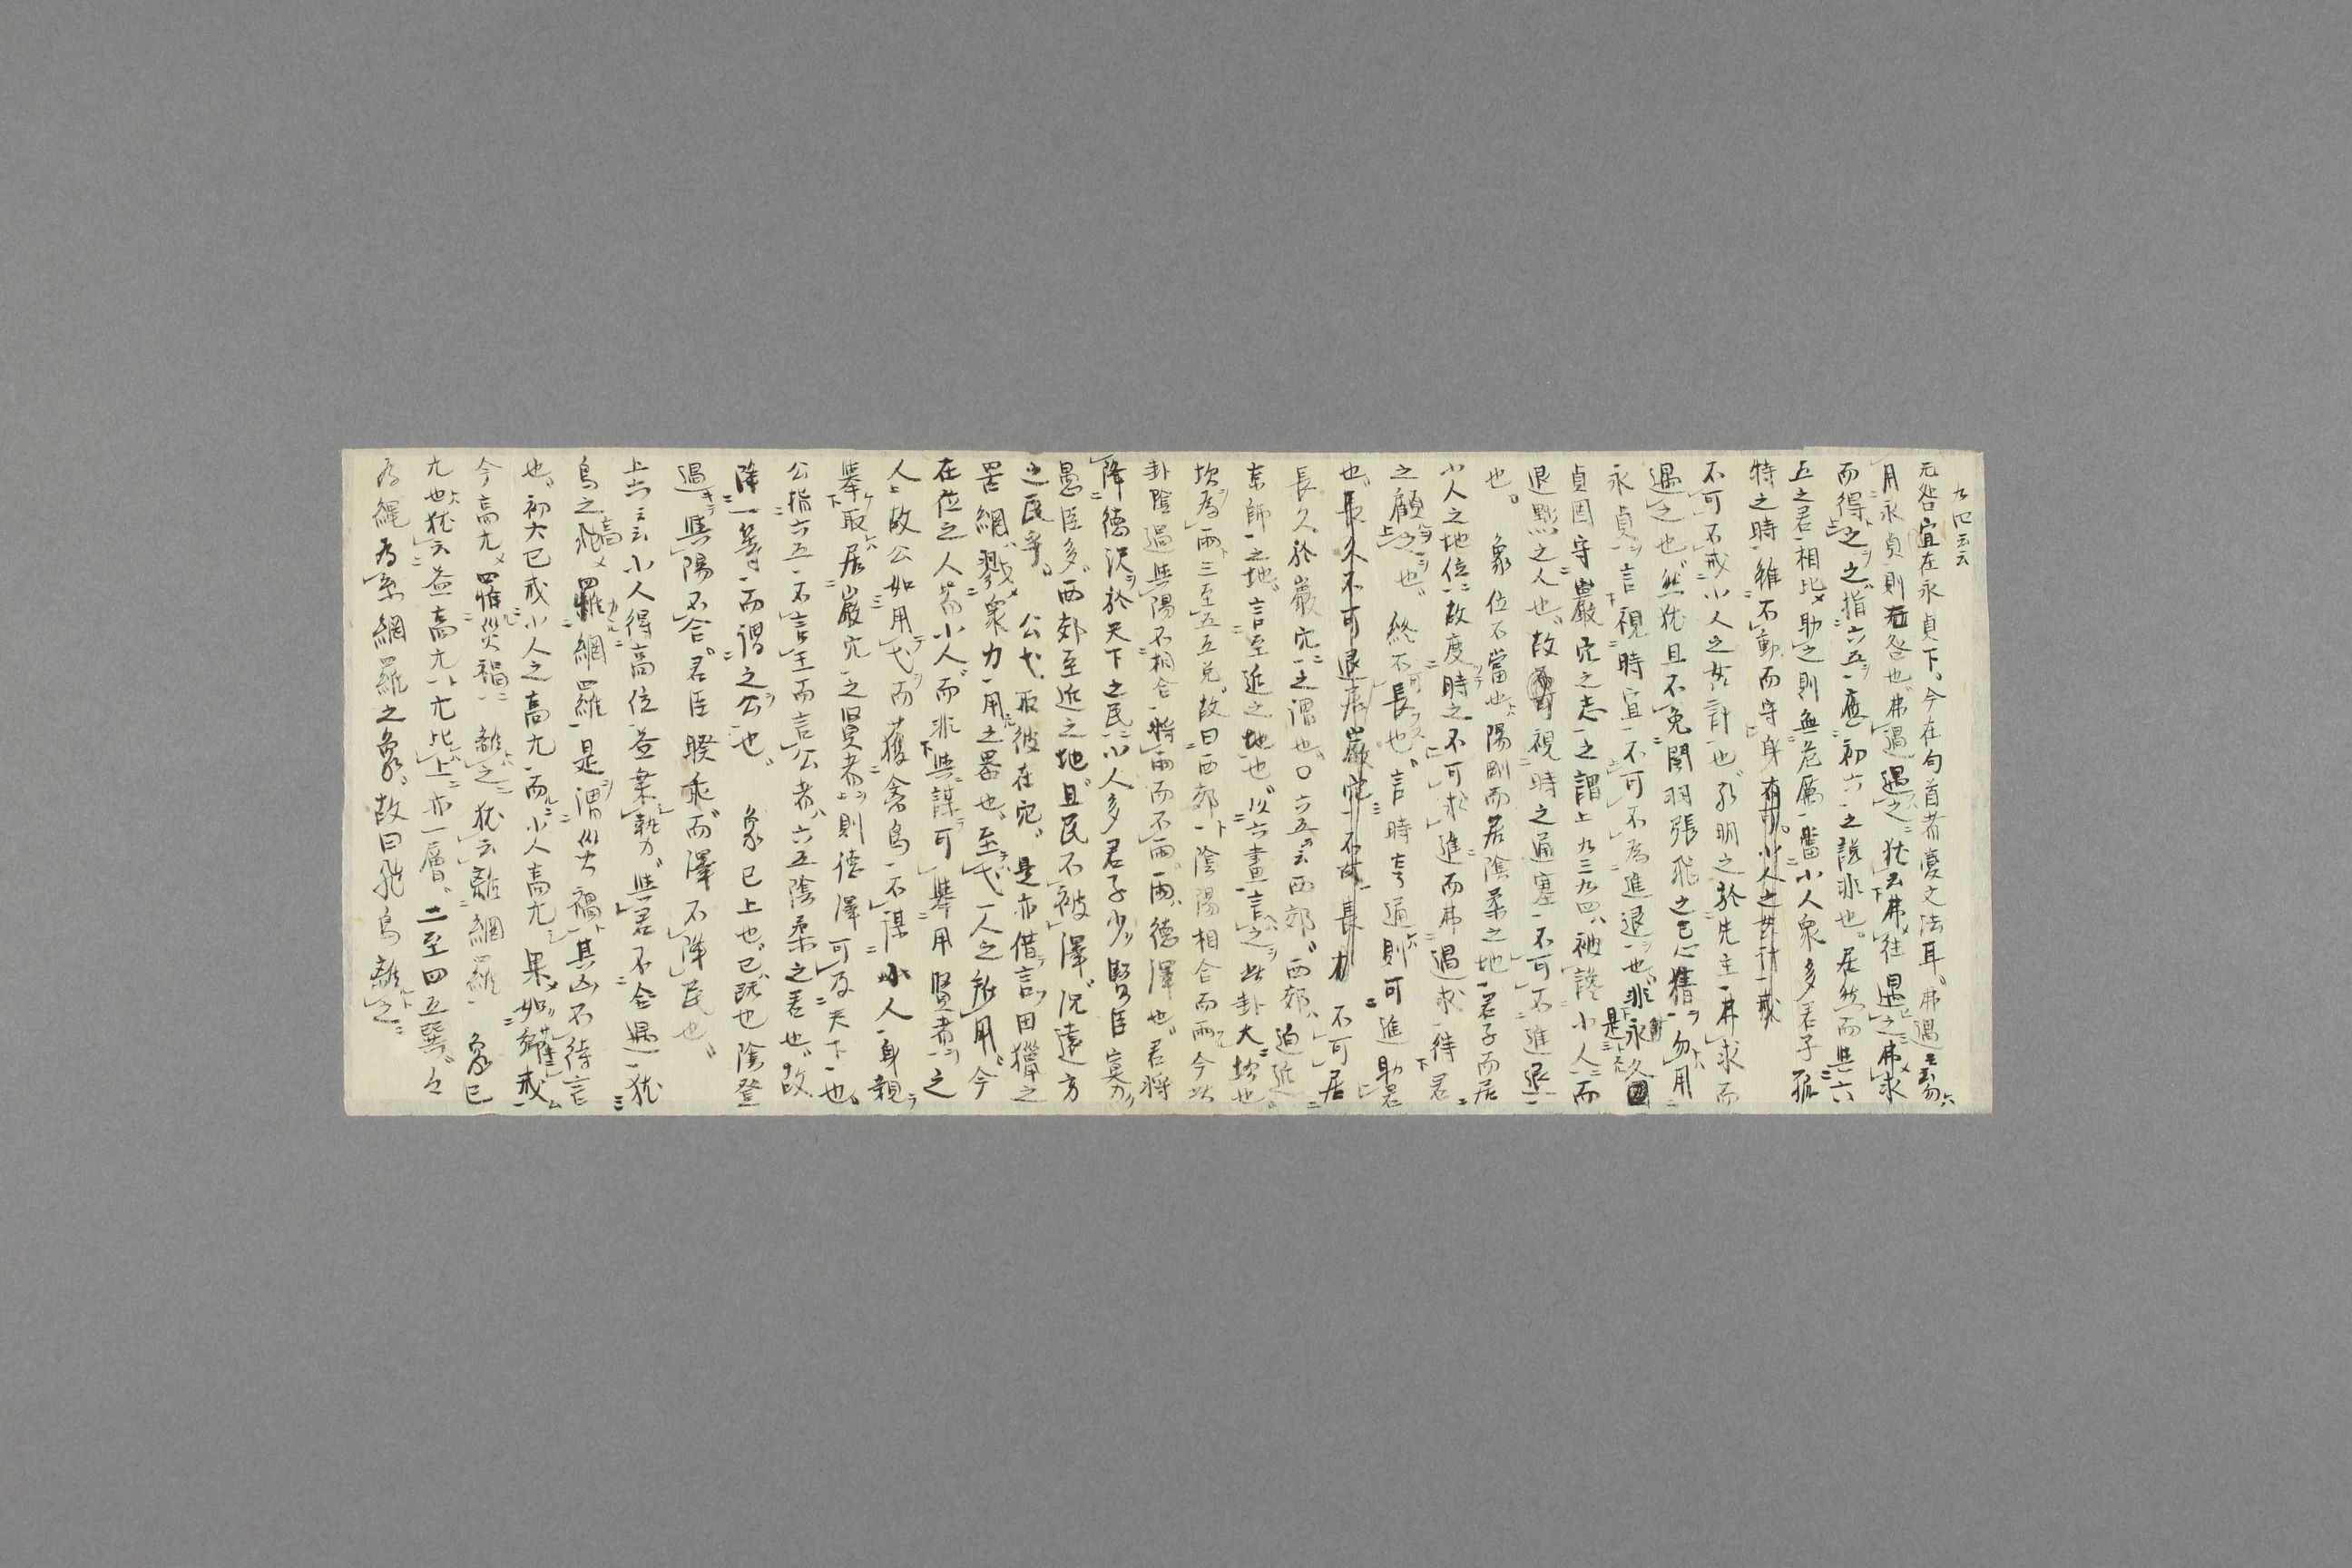 九四云云
无咎宜在永貞下、今在句首者変文法耳、弗過云易
用永貞則无咎也、弗過遇之猶云弗往遇之弗求
而得之之、指六五應初六之説非也。居然而與六
五之君相比助之則無危厲當小人衆多君子孤
特之時雖不動而守身
不可不戒小人之奸計也、弗求而
遇之也、然猶且不免開羽張飛之猜勿用
永貞言視時宜不可不為進退也、非永久
貞固守巖穴之志之謂上九三九四、被讒小人而
退黙之人也、故視時之通塞不可不進退
也。 象位不當也、陽剛而居陰柔之地君子而居
小人之地位故度時之不可求進而弗過求待君
之顧也、終不可長也、言時亨通則可進助君
也、長久不可退居巖穴不可居
長久於巖穴之謂也、〇六五云西郊、西郊、迫近
京師之地、言至近之地也、以六畫言之此卦大坎也
坎為雨、三至五互兌、故曰西郊陰陽相合而雨今此
卦陰過與陽不相合將雨而不雨、雨、德澤也、君將
降德沢於天下之民小人多君子少賢臣寡
愚臣多、西郊至近之地、且民不被澤、況遠方
之民乎。 公弋、取彼在穴、是亦借言田獵之
罟網、戮衆力用之器也、至弋一人之所用、今
在位之人若小人、而非與謀可舉用賢者之
人、故公如用弋而獲禽鳥不謀小人身親
舉取居巖穴之賢者則德澤可及天下也、
公指六五不言王而言公者、六五陰柔之君也、故
降一等而謂之公也、 象已上也、已、既也陰登
過與陽不合。君臣睽乖、而澤不降民也、
上六云云小人得高位益乗執力、與君不合遇猶
鳥之飛高罹網羅是謂災禍其凶不待言
也、初六已戒小人之高亢而小人高亢果如戒
今高亢罹災禍離之猶云離網羅 象已
亢也猶云益高亢、亢比上亦一層、二至四互巽、
為繩為糸網羅之象、故曰飛鳥離之